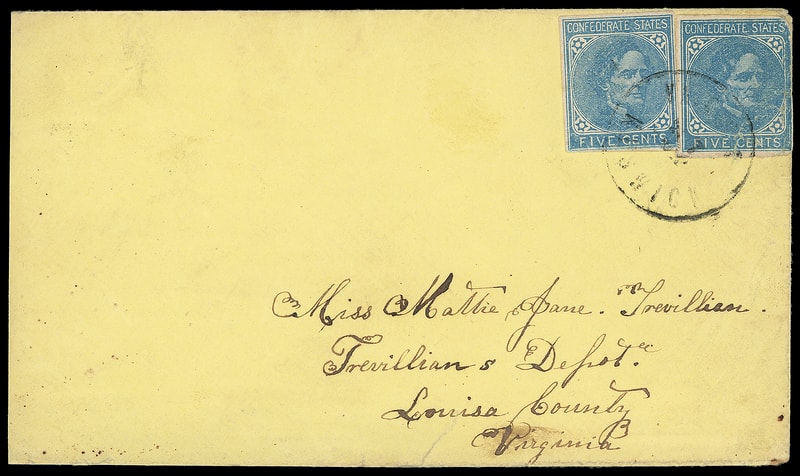 CONFEDERATE STATES
FIVE CENTS
CONFEDERATE STATES
FIVE CENTS
Miss Mattie Jane. Trevillian.
Trevillian s Depot.
Louisa County
Virginia